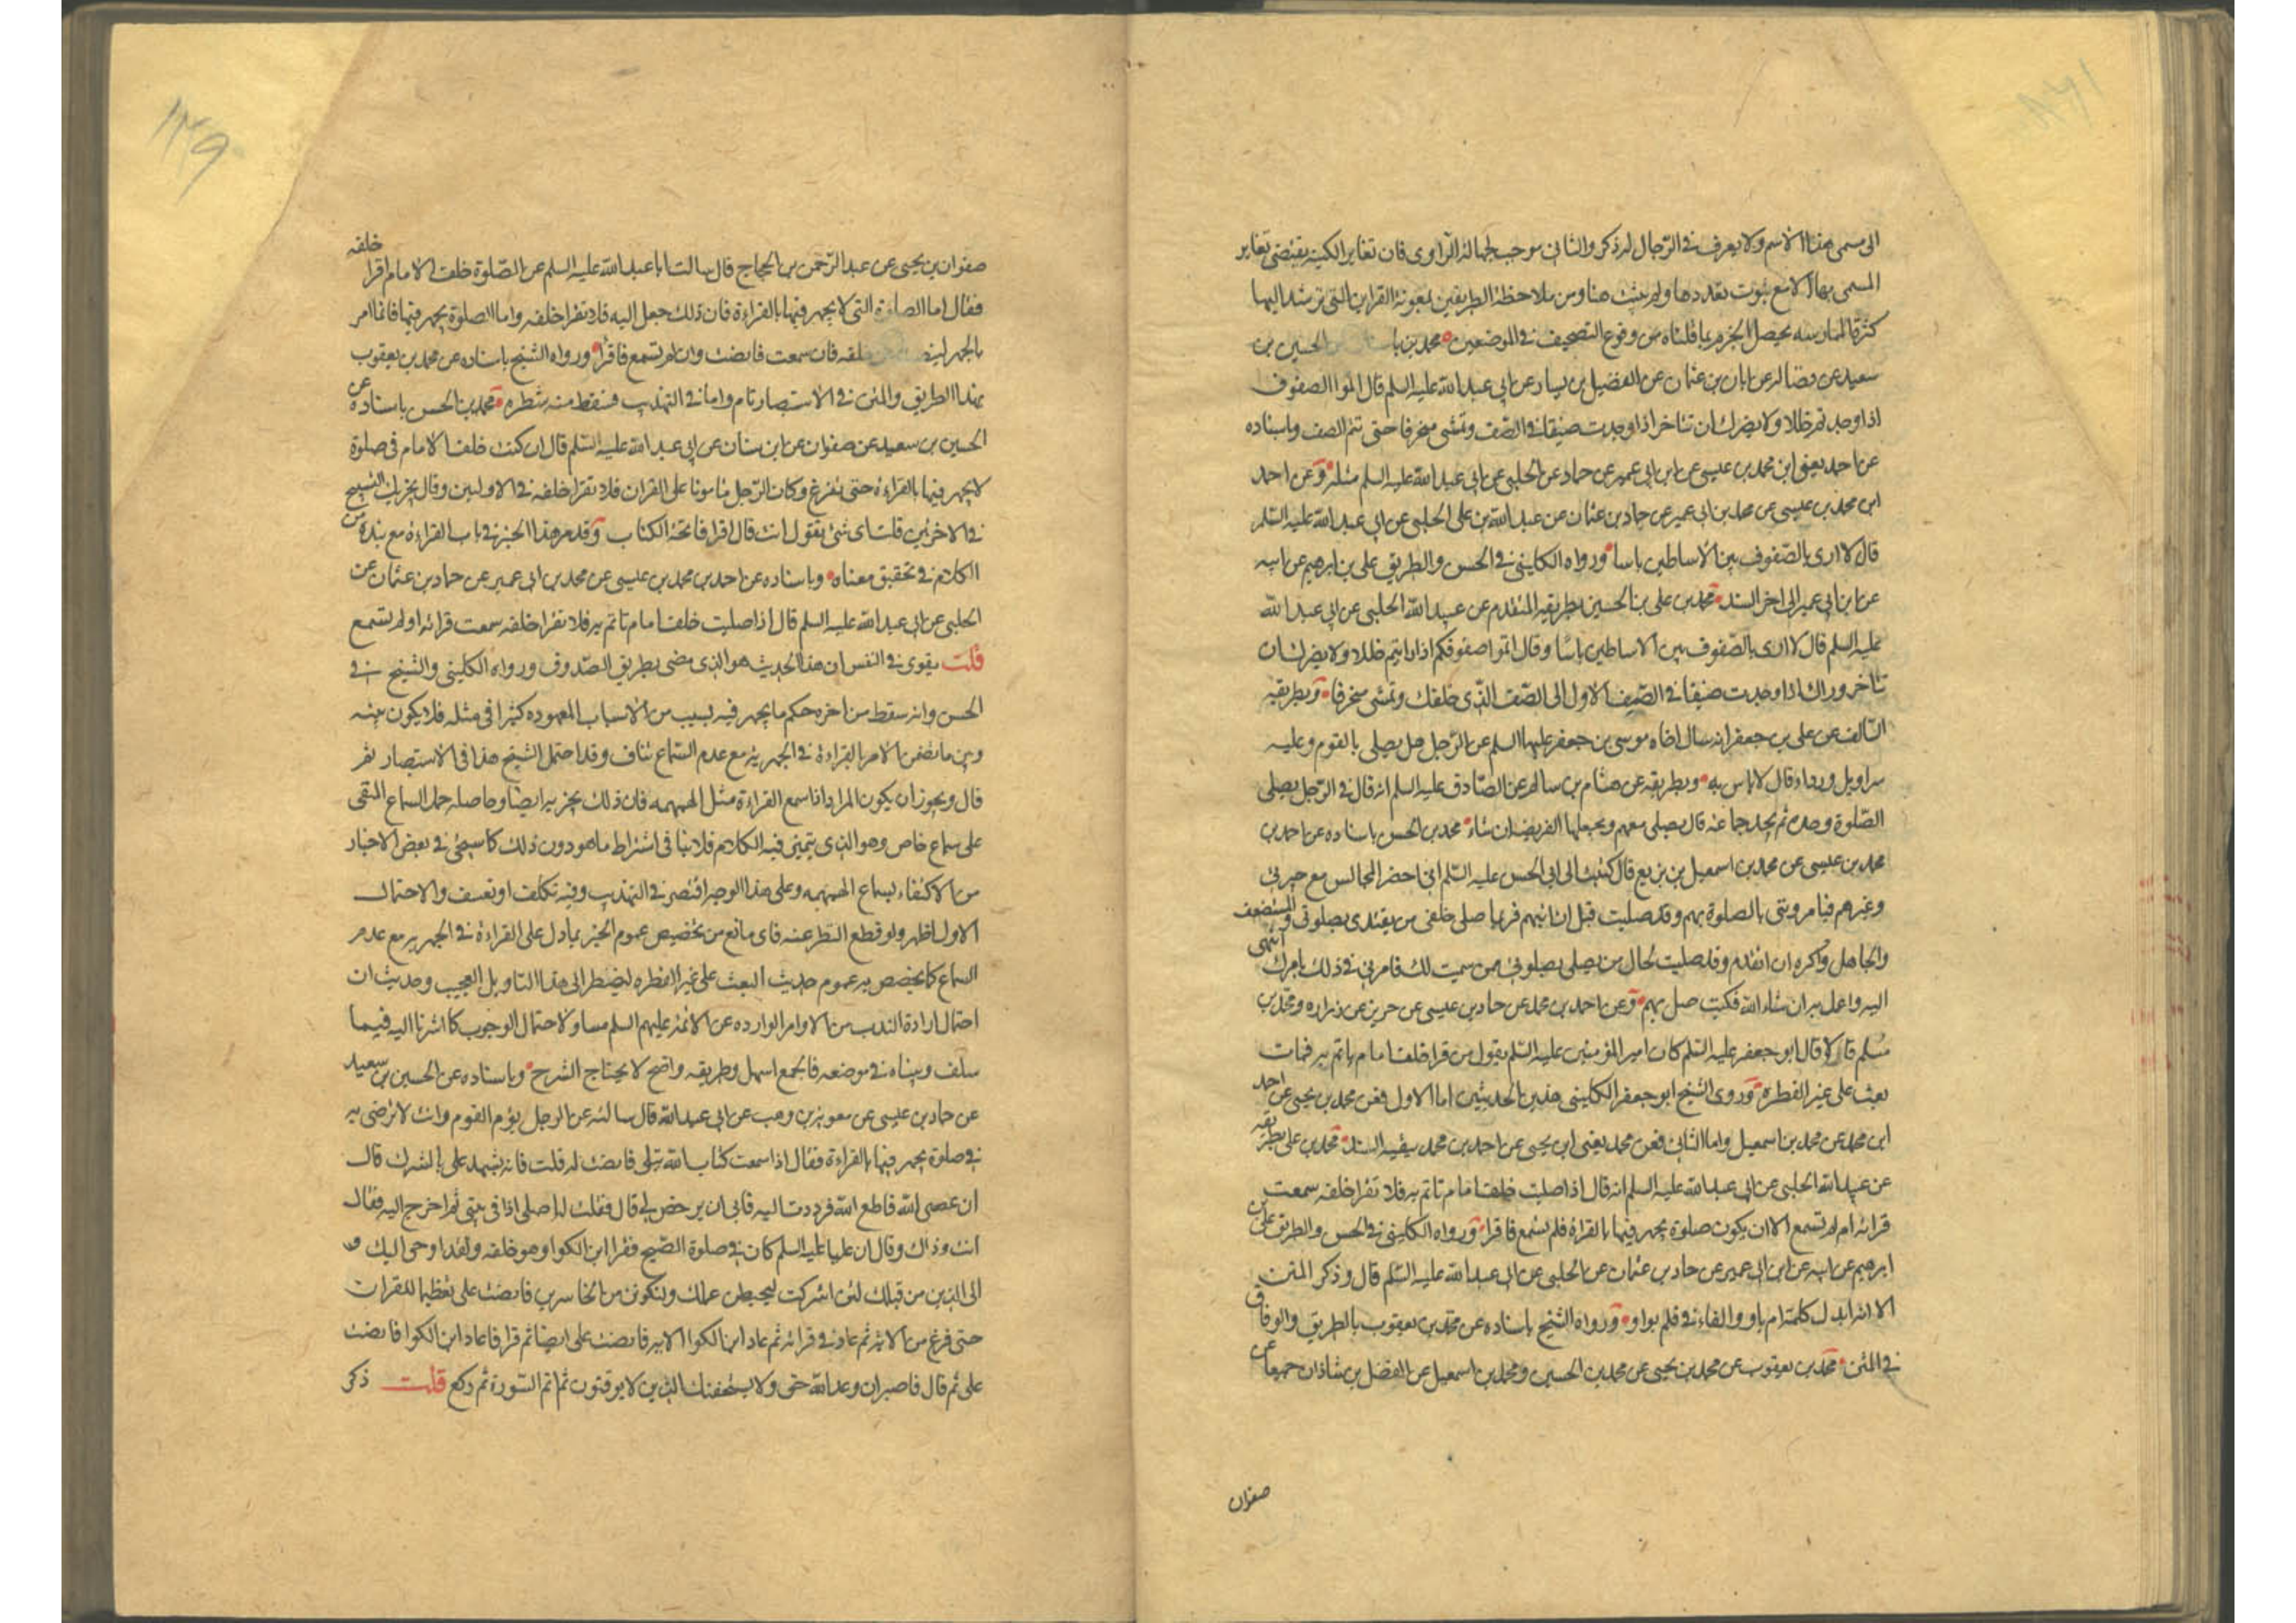 الى مسمى هذا الاسم ولا يعرف في الرجال له ذكر والثاني موجب لجهالة الراوي فان تغاير الكنية يقتضي تغاير
المسمى بها الا مع ثبوت تعددها ولم يثبت هنا ومن ملاحظة الطريقين بمعونة القراين التي ترشد اليها
كثرة الممارسه يحصل الجزم بما قلناه من وقوع التصحيف في الموضعين محمد بن الحسين بن
سعيد عن فضاله عن ابان بن عثمان عن الفضيل بن يسار عن ابي عبد الله عليه السلم قال اتموا الصفوف
اذا وجدتم خللا ولا يضرك ان تتاخر اذا وجدت ضيقا في الصف وتمشي منحرفا حتى تتم الصف وباسناده
عن احمد يعني ابن محمد بن عيسى عن ابن ابي عمير عن حماد عن الحلبي عن ابي عبد الله عليه السلم مثله وعن احمد
ابن محمد بن عيسى عن محمد بن ابي عمير عن حماد بن عثمان عن عبد الله بن على الحلبي عن ابي عبد الله عليه السلم
قال لا ارى بالصفوف بين الاساطين باسا ورواه الكليني في الحسن والطريق على بن ابرهيم عن ابيه
عن ابن ابي عمير الى اخر السند محمد بن على بن الحسين بطريقه المتقدم عن عبيد الله الحلبي عن ابي عبد الله
عليه السلم قال لا ارى بالصفوف بين الاساطين باسا وقال اتموا صفوفكم اذا رايتم خللا ولا يضرك ان
تتاخر وراك اذا وجدت ضيقا في الصف الاول الى الصف الذي خلفك وتمشي منحرفا وبطريقه
السالف عن على بن جعفر انه سال اخاه موسى بن جعفر عليهما السلم عن الرجل هل يصلي بالقوم وعليه
سراويل ورداء قال لا باس به وبطريقه عن هشام بن سالم عن الصادق عليه السلم انه قال في الرجل يصلي
الصلوة وحده ثم يجد جماعه قال يصلي معهم ويجعلها الفريضه ان شاء محمد بن الحسن باسناده عن احمد بن
محمد بن عيسى عن محمد بن اسمعيل بن بزيع قال كتبت الى ابي الحسن عليه السلم اني احضر المجالس مع جيرتي
وغيرهم فيامرونني بالصلوة بهم وقد صليت قبل ان اتيهم فربما صلى خلفي من يقتدي بصلوتي والمستضعف
والجاهل واكره ان اتقدم وقد صليت لحال من يصلي بصلوتي ممن سميت لك فامرني في ذلك بامرك انتهي
اليه واعمل به ان شاء الله فكتب صل بهم وعن احمد بن محمد عن حماد بن عيسى عن حريز عن زراره ومحمد بن
مسلم قالا قال ابو جعفر عليه السلم كان امير المؤمنين عليه السلم يقول من قرا خلف امام ياتم به فمات
بعث على غير الفطرة وروى الشيخ ابو جعفر الكليني هذين الحديثين اما الاول فعن محمد بن يحيى عن احمد
ابن محمد عن محمد بن اسمعيل واما الثاني فعن محمد يعني ابن يحيى عن احمد بن محمد ببقية السند محمد بن على بطريقه
عن عبيد الله الحلبي عن ابي عبد الله عليه السلم انه قال اذا صليت خلف امام تاتم به فلا تقرا خلفه سمعت
قرائه ام لم تسمع الا ان يكون صلوة يجهر فيها بالقراة فلم تسمع فاقرا ورواه الكليني في الحسن والطريق على بن
ابرهيم عن ابيه عن ابن ابي عمير عن حماد بن عثمان عن الحلبي عن ابي عبد الله عليه السلم قال وذكر المتن
الا انه ابدل كلمة ام باو والفاء في فلم بواو ورواه الشيخ باسناده عن محمد بن يعقوب بالطريق والوفاق
في المتن محمد بن يعقوب عن محمد بن يحيى عن محمد بن الحسين ومحمد بن اسمعيل عن الفضل بن شاذان جميعا عن
صفوان
١٣٩
صفوان بن يحيى عن عبد الرحمن بن الحجاج قال سالت ابا عبد الله عليه السلم عن الصلوة خلف الامام اقرا خلفه
فقال اما الصلوة التي لا يجهر فيها بالقراءة فان ذلك جعل اليه فلا تقرا خلفه واما الصلوة يجهر فيها فانما امر
بالجهر لينصت خلفه فان سمعت فانصت وان لم تسمع فاقرا ورواه الشيخ باسناده عن محمد بن يعقوب
بهذا الطريق والمتن في الاستبصار تام واما في التهذيب فسقط منه شطره محمد بن الحسن باسناده عن
الحسين بن سعيد عن صفوان عن ابن سنان عن ابي عبد الله عليه السلم قال ان كنت خلف الامام في صلوة
لا يجهر فيها بالقراءة حتى يفرغ وكان الرجل مامونا على القران فلا تقرا خلفه في الاوليين وقال يجزيك التسبيح
في الاخرتين قلت اي شئ تقول انت قال اقرا فاتحة الكتاب وقد مر هذا الخبر في باب القراءة مع نبذة من
الكلام في تحقيق معناه وباسناده عن احمد بن محمد بن عيسى عن محمد بن ابي عمير عن حماد بن عثمان عن
الحلبي عن ابي عبد الله عليه السلم قال اذا صليت خلف امام تاتم به فلا تقرا خلفه سمعت قرائه او لم تسمع
قلت يقوى في النفس ان هذا الحديث هو الذي مضى بطريق الصدوق ورواه الكليني والشيخ في
الحسن وانه سقط من اخره حكم ما يجهر فيه لسبب من الاسباب المعهوده كثيرا في مثله فلا يكون بينه
وبين ما تضمن الامر بالقراءة في الجهرية مع عدم السماع تناف وقد احتمل الشيخ هذا في الاستبصار ثم
قال ويجوز ان يكون المراد اذا سمع القراءة مثل الهمهمه فان ذلك يجزيه ايضا وحاصله حمل السماع المنفي
على سماع خاص وهو الذي يتميز فيه الكلام فلا ينافي اشتراط ما هو دون ذلك كما سيجئ في بعض الاخبار
من الاكتفاء بسماع الهمهمه وعلى هذا الوجه اقتصر في التهذيب وفيه تكلف او تعسف والاحتمال
الاول اظهر ولو قطع النظر عنه فاي مانع من تخصيص عموم الخبر بما دل على القراءة في الجهريه مع عدم
السماع كما يخصص به عموم حديث البعث على غير الفطره ليضطر الى هذا التاويل العجيب وحديث ان
احتمال ارادة الندب من الاوامر الوارده عن الائمة عليهم السلم مساو لاحتمال الوجوب كما اشرنا اليه فيما
سلف وبيناه في موضعه فالجمع اسهل وطريقه واضح لا يحتاج الشرح وباسناده عن الحسين بن سعيد
عن حماد بن عيسى عن معوية بن وهب عن ابي عبد الله قال سالته عن الرجل يؤم القوم وانت لا ترضى به
في صلوة يجهر فيها بالقراءة فقال اذا سمعت كتاب الله يتلى فانصت له قلت فانه يشهد على بالشرك قال
ان عصى الله فاطع الله فرددت اليه فابى ان يرخص لي قال فقلت له اصلي اذا في بيتي ثم اخرج اليه فقال
انت وذاك وقال ان عليا عليه السلم كان في صلوة الصبح فقرا ابن الكوا وهو خلفه ولقد اوحي اليك و
الى الذين من قبلك لئن اشركت ليحبطن عملك ولتكونن من الخاسرين فانصت على تعظيما للقران
حتى فرغ من الاية ثم عاد في قرائه ثم عاد ابن الكوا الايه فانصت على ايضا ثم قرا فاعاد ابن الكوا فانصت
على ثم قال فاصبر ان وعد الله حق ولا يستخفنك الذين لا يوقنون ثم اتم السورة ثم ركع قلت ذكر